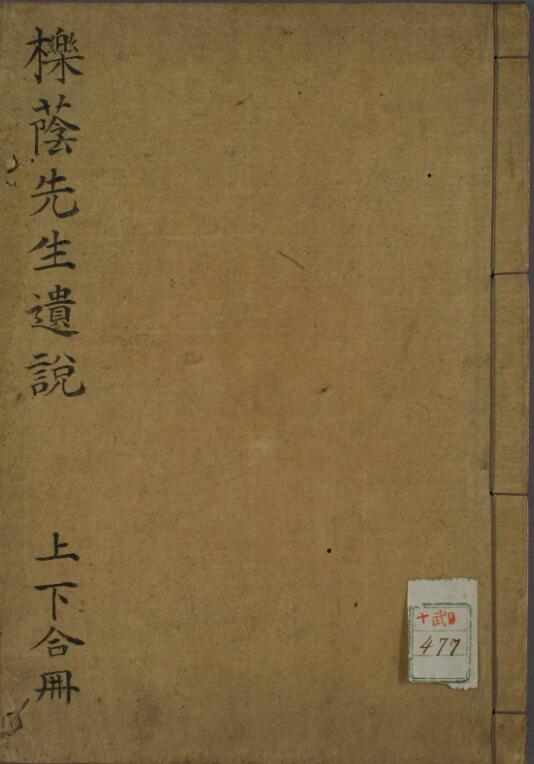 櫟蔭先生遺說
上下合冊
十武
477